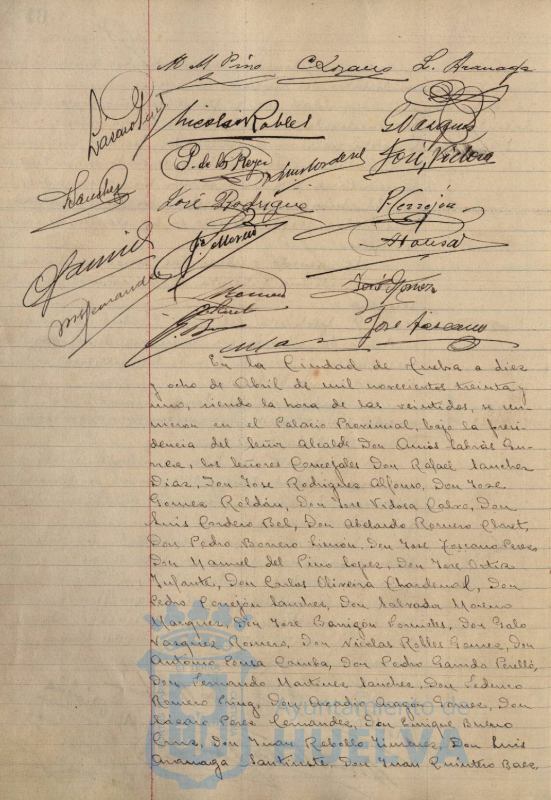 M M Pino C Lozano L. Aranaga
Nicolas Robles G Vazquez
P. de los Reyes José Vidosa
Sanchez
José Rodriguez P. Cerrejón
Fco Moreno
M Fernandez
Romero
Claret
José Gómez
José Toscano
En la Ciudad de Huelva a diez
y ocho de Abril de mil novecientos treinta y
uno, siendo la hora de las veintidos, se reu-
nieron en el Palacio Provincial, bajo la presi-
dencia del Señor Alcalde Don Amós Sabrás Gu-
rrea, los Señores Concejales Don Rafael Sanchez
Diaz, Don Jose Rodriguez Alfonso, Don Jose
Gomez Roldán, Don Jose Vidosa Calvo, Don
Luis Cordero Bel, Don Abelardo Romero Claret,
Don Pedro Borrero Limón, Don José Toscano Perez
Don Manuel del Pino Lopez, Don Jose Ortiz
Infante, Don Carlos Oliveira Chardenal, Don
Pedro Cerrejon Sanchez, Don Salvador Moreno
Marquez, Don José Barrigon Fornieles, Don Galo
Vazquez Romero, Don Nicolas Robles Gomez, Don
Antonio Pousa Camba, Don Pedro Garrido Perelló,
Don Fernando Martinez Sanchez, Don Federico
Romero Don Arcadio Aragón Gomez, Don
Perez Hernandez, Don Enrique Bueno
Cruz, Don Juan Rebollo Jimenez, Don Luis
Aranaga Don Juan Quintero Baez,
Ayuntamiento de
HUELVA